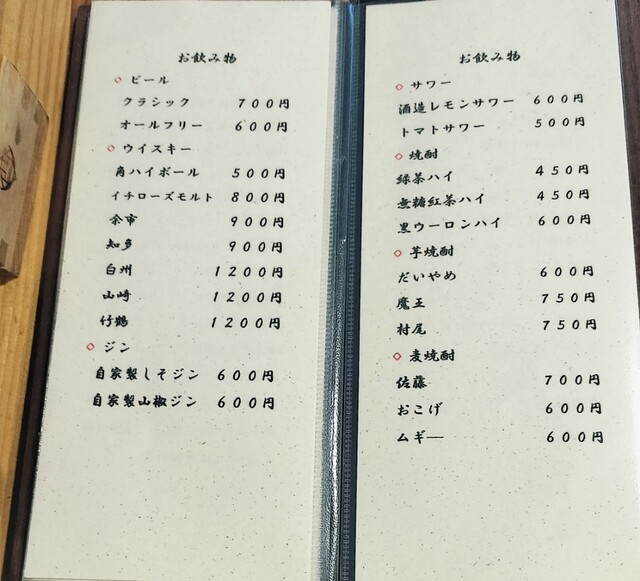 お飲み物
◇ ビール
クラシック 700円
オールフリー 600円
◇ ウイスキー
角ハイボール 500円
イチローズモルト 800円
余市 900円
知多 900円
白州 1200円
山崎 1200円
竹鶴 1200円
◇ ジン
自家製しそジン 600円
自家製山椒ジン 600円
お飲み物
◇ サワー
酒造レモンサワー 600円
トマトサワー 500円
◇ 焼酎
緑茶ハイ 450円
無糖紅茶ハイ 450円
黒ウーロンハイ 600円
◇ 芋焼酎
だいやめ 600円
魔王 750円
村尾 750円
◇ 麦焼酎
佐藤 700円
おこげ 600円
ムギ― 600円